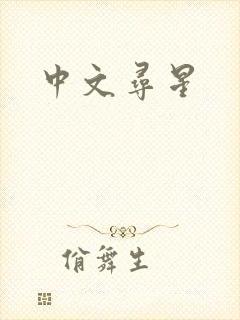 中文尋星
俏舞生